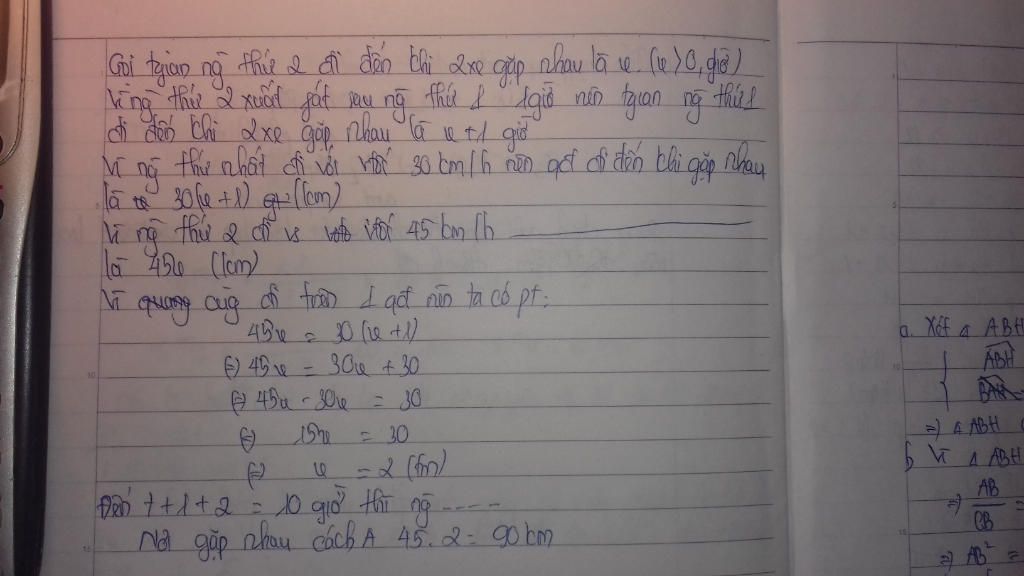 Gọi tgian ng thứ 2 đi đến khi 2xe gặp nhau là x. (x>0, giờ)
Vì ng thứ 2 xuất phát sau ng thứ 1 1giờ nên tgian ng thứ 1
đi đến khi 2xe gặp nhau là x+1 giờ
Vì ng thứ nhất đi với vtốc 30km/h nên qđ đi đến khi gặp nhau
là 30(x+1) (km)
Vì ng thứ 2 đi vs vtốc 45km/h
là 45x (km)
Vì cùg đi trên 1 qđ nên ta có pt:
45x = 30(x+1)
(=) 45x = 30x + 30
(=) 45x - 30x = 30
(=) 15x = 30
(=) x = 2 (tm)
Đến 7+1+2 = 10 giờ thì ng ----
Nơi gặp nhau cách A 45.2 = 90km
a. Xét Δ ABH
ABH
BAH
=) Δ ABH
b, Vì Δ ABH
=) AB/CB =
=) AB² =